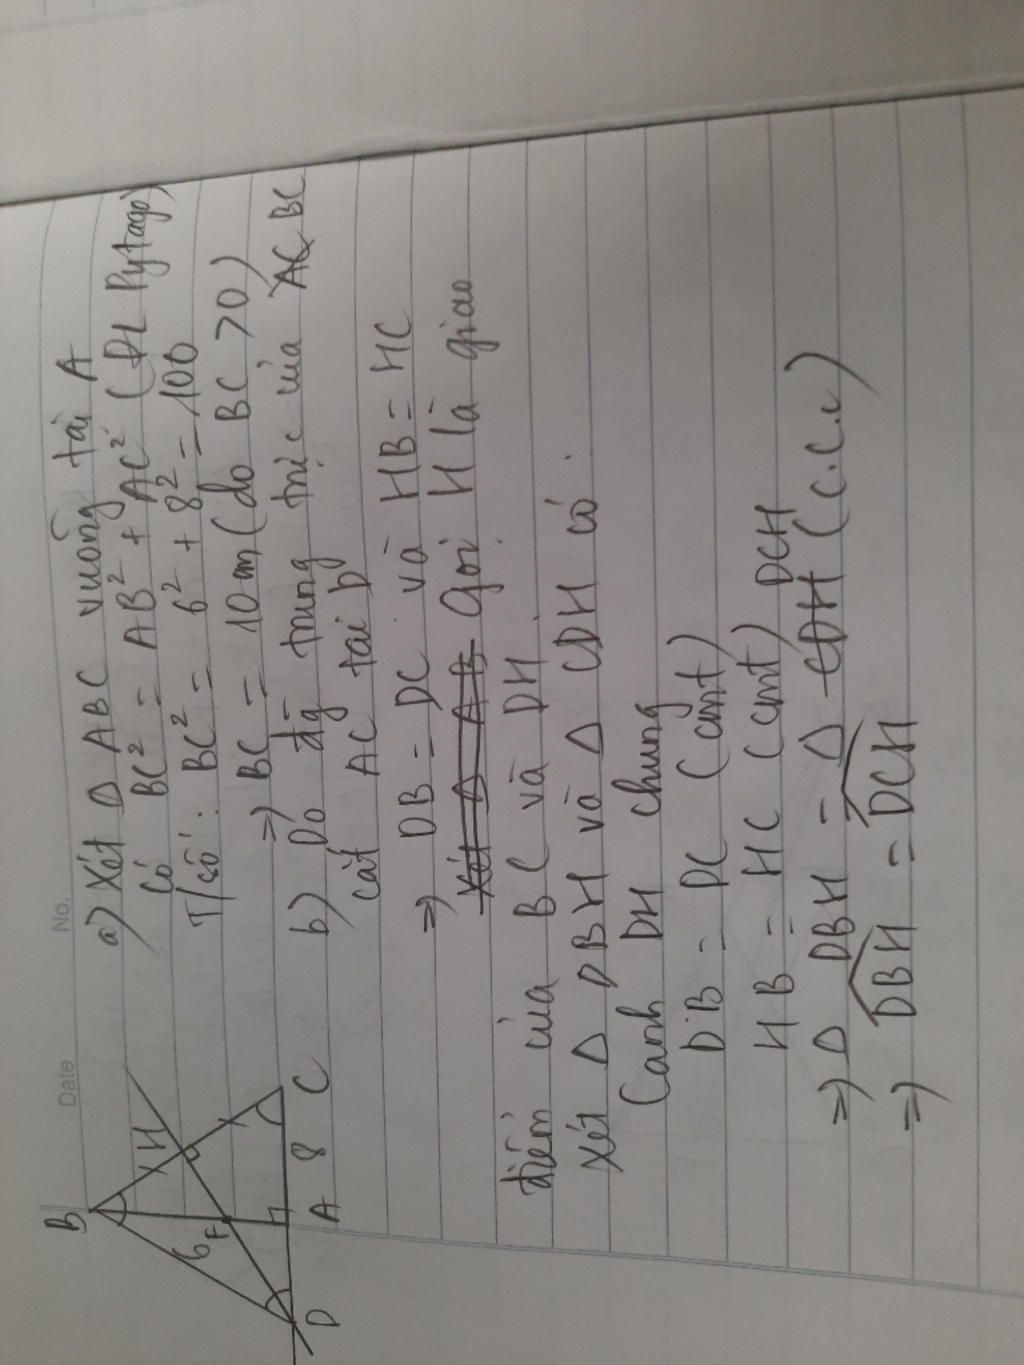 Date No.
B
H
6
F
D
A 8 C
a) Xét Δ ABC vuông tại A
Có BC² = AB² + AC² (ĐL Pytago)
T/số: BC² = 6² + 8² = 100
=) BC = 10 cm (do BC > 0)
b) Do đg trung trực của AC BC
cắt AC tại D
=) DB = DC và HB = HC
Xét Δ AB Gọi H là giao
điểm của BC và DH
Xét Δ DBH và Δ CDH có.
Canh DH chung
DB = DC (cmt)
HB = HC (cmt)
=) Δ DBH = Δ CDH DCH (c.c.c)
=) DBH = DCH